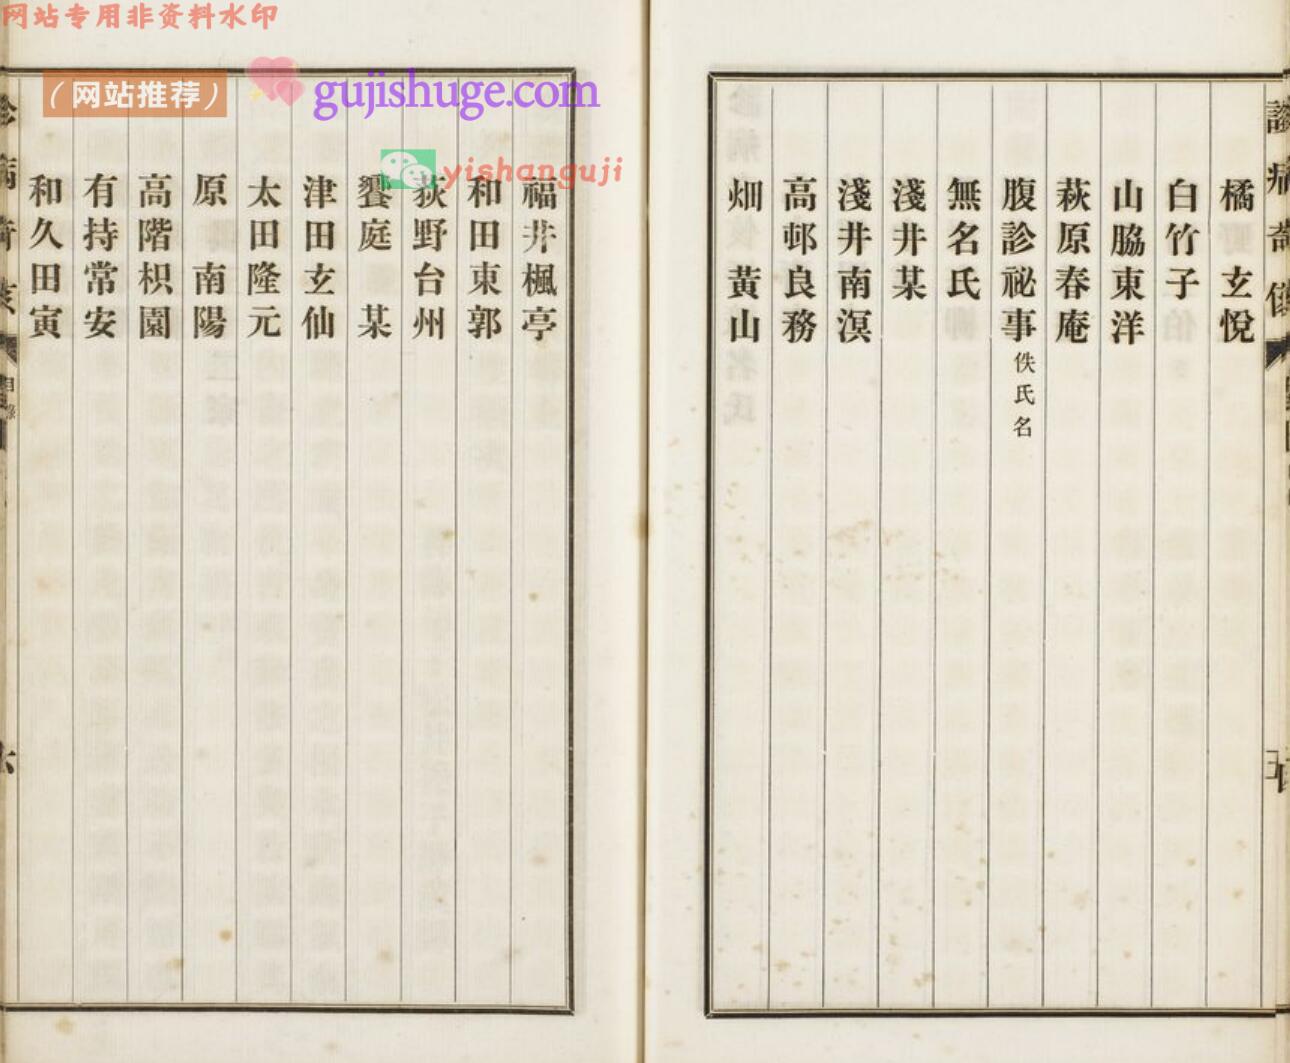 网站专用非资料水印
(网站推荐)
gujishuge.com
yishanguji
橘玄悅
白竹子
山脇東洋
萩原春庵
腹診祕事佚氏名
無名氏
淺井某
淺井南溟
高邨良務
畑黃山
福井楓亭
和田東郭
荻野台州
饗庭某
津田玄仙
太田隆元
原南陽
高階枳園
有持常安
和久田寅
目錄
六